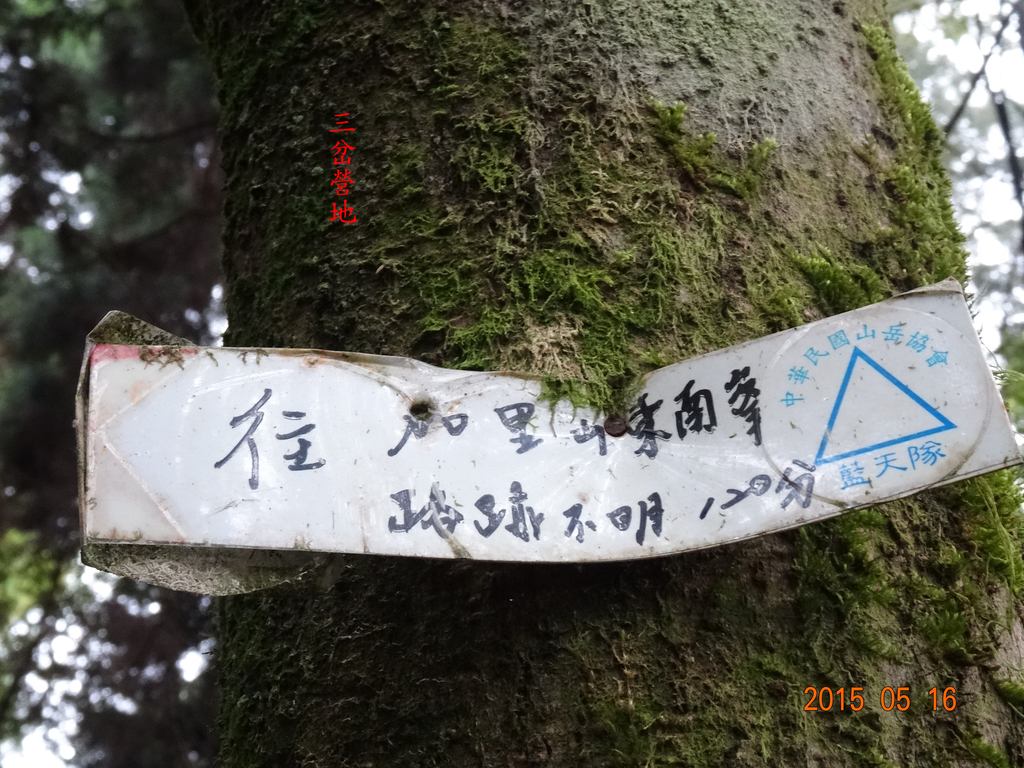 三岔營地
往 加里山東南峯
路跡不明 120分
中華民國山岳協會
藍天隊
2015 05 16